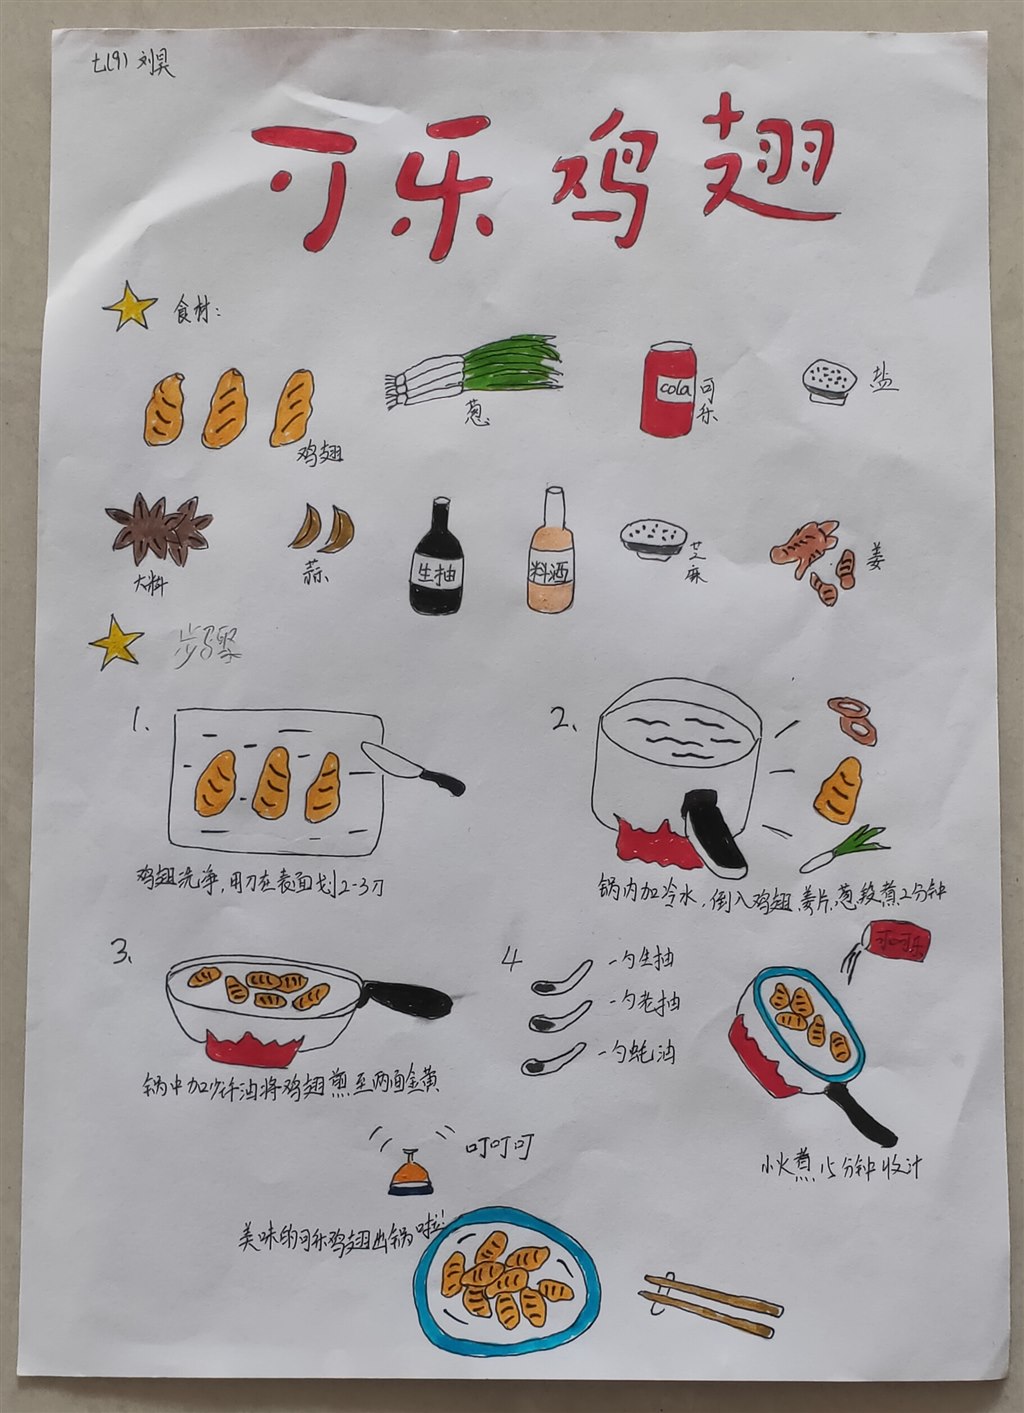 七(9) 刘昊
可乐鸡翅
食材:
鸡翅
葱
cola
可乐
盐
大料
蒜
生抽
料酒
芝麻
姜
步骤
1.
鸡翅洗净,用刀在表面划2-3刀
2、
锅内加冷水,倒入鸡翅、姜片、葱段煮2分钟
3、
锅中加少许油将鸡翅煎至两面金黄
4
一勺生抽
一勺老抽
一勺蚝油
可口可乐
小火煮15分钟收汁
叮叮叮
美味的可乐鸡翅出锅啦!